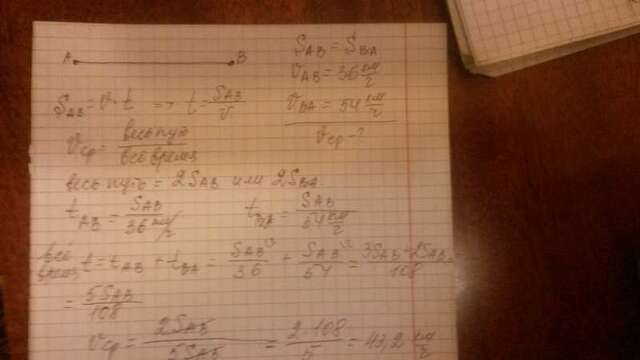 A B
S_AB = S_BA
V_AB = 36 км/ч
V_BA = 54 км/ч
V_ср - ?
S_AB = v · t => t = S_AB / v
V_ср = весь путь / все время
весь путь = 2S_AB или 2S_BA
t_AB = S_AB / 36 км/ч t_BA = S_AB / 54 км/ч
все время t = t_AB + t_BA = S_AB^3 / 36 + S_AB^2 / 54 = 3S_AB + 2S_AB / 108
= 5S_AB / 108
V_ср = 2S_AB / 5S_AB = 2 · 108 = 43,2 км